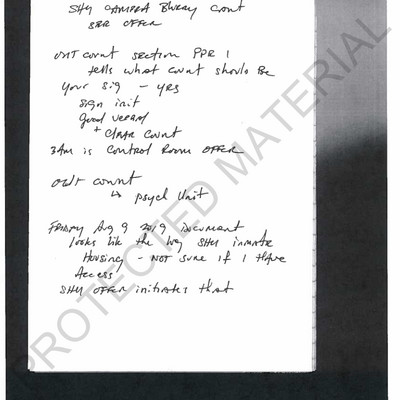 SHU CAMERA Blurry Cont
SRR OFFER
OUT count section PPR 1
tells what count should Be
Your Sig - yes
sign init
Good verbal
+ clear count
3AM is control Room OFFER
OUT count
↳ psych Unit
FRIDAY Aug 9 2019 Document
looks like the log SHU inmate
Housing - NOT sure if I have
Access
SHU OFFER initiates that
PROTECTED MATERIAL